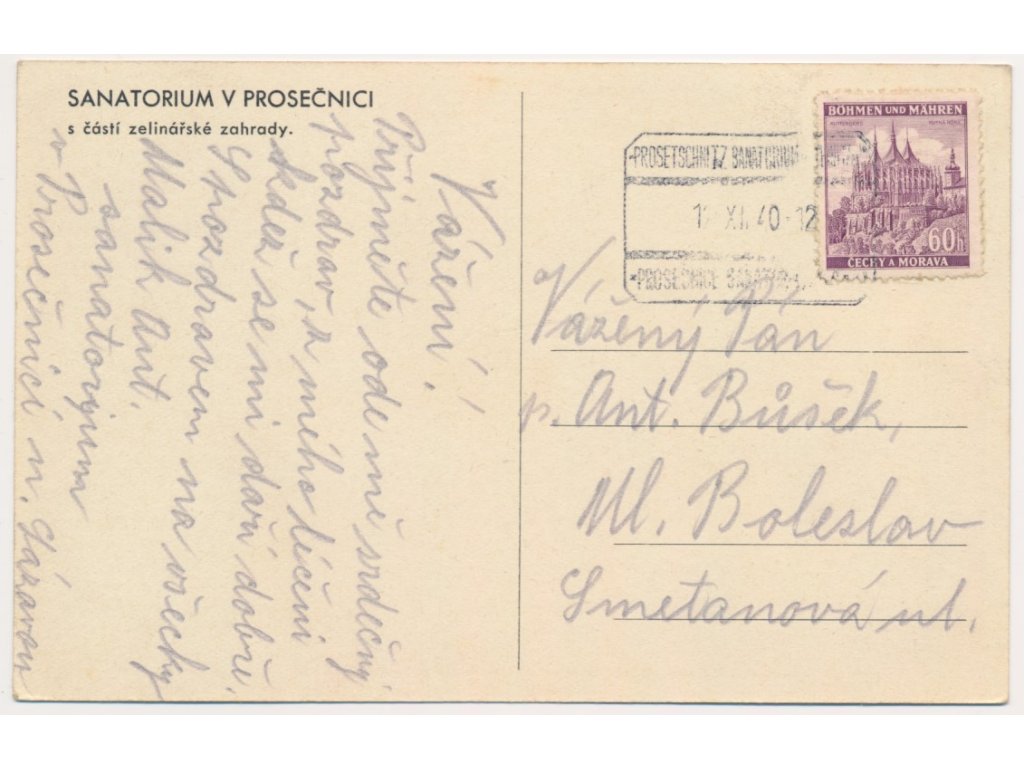 SANATORIUM V PROSEČNICI
s částí zelinářské zahrady.
Vážení!
Přijměte ode mě srdečný
pozdrav, z mého léčení
sedeš se mi daří dobře.
S pozdravem na všecky
Malik Ant.
sanatorjum
v Prosečnici n. Sázavou
BÖHMEN UND MÄHREN
KUTTENBERG KUTNÁ HORA
60h
ČECHY A MORAVA
PROSETSCHNITZ SANATORIUM
XI. 40-12
PROSEČNICE
Vážený Pán
p. Ant. Bůšek,
Ml. Boleslav
Smetanová ul.